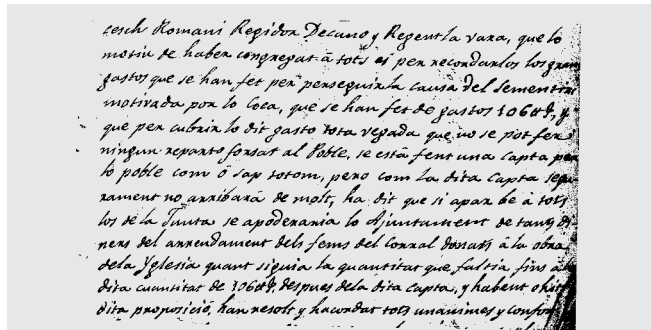 cesch Romani Regidor Decano y Regent la vara, que lo
motiu de haber congregat â tots es per recordarlos los grans
gastos que se han fet per perseguir la causa del Sementiri
motivada por lo Coca, que se han fet de gastos 306 y
que per cubrir lo dit gasto tota vegada que no se pot fer
ningun reparto forsat al Poble, se está fent una Capta per
lo poble com ô sap totom, pero com la dita Capta segu
rament no arribará de molt, ha dit que si apar be â tots
los de la Junta se apoderaria lo Ajuntament de tants di
ners del arrendament dels fems del Corral donats â la obra
dela Yglesia quant siguia la quantitat que faltia fins â la
dita cuantitat de 306 despues dela dita Capta, y habent
dita proposició, han resolt y hacordat tots unanimes y